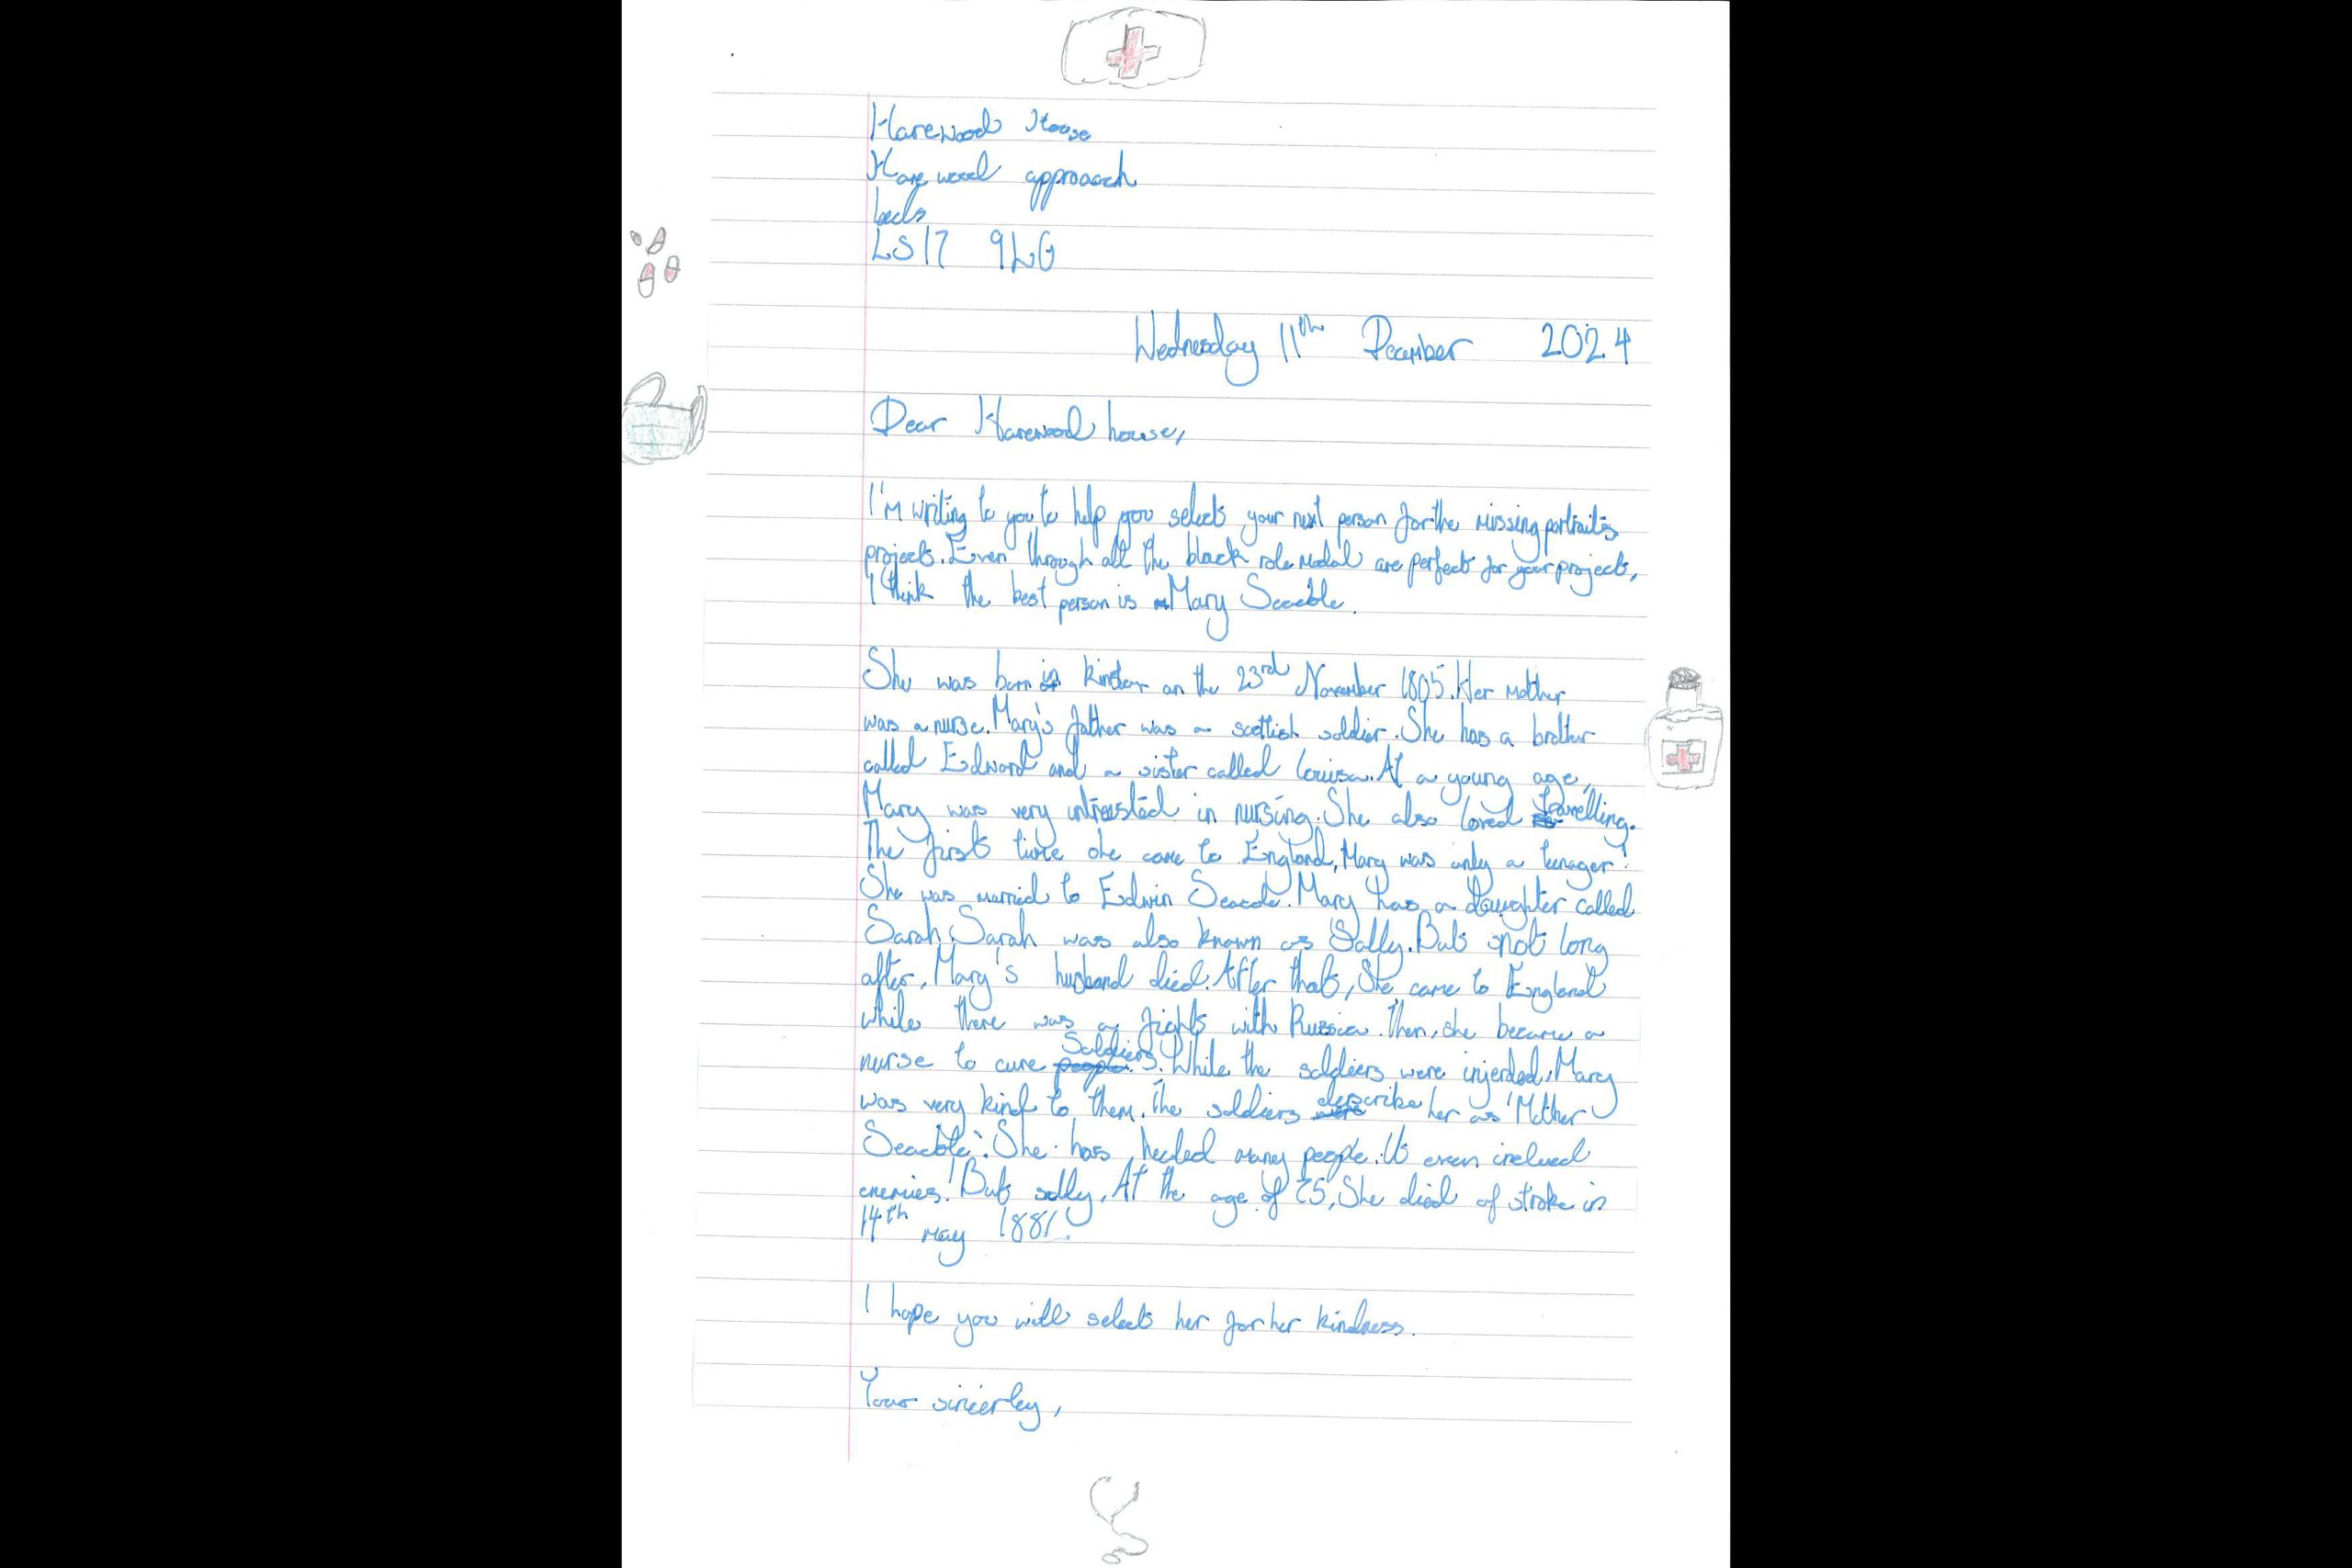 Harewood House
Harewood approach
leeds
LS17 9LG
Wednesday 11th December 2024
Dear Harewood house,
I'm writing to you to help you select your next person for the missing portraits
project. Even through all the black role modal are perfect for your project,
I think the best person is Mary Seacole.
She was born in kinston on the 23rd November 1805. Her mother
was a nurse. Mary's father was a scottish soldier. She has a brother
called Edward and a sister called louisa. At a young age,
Mary was very intrested in nursing. She also loved travelling.
The first time she came to England, Mary was only a teenager!
She was married to Edwin Seacole. Mary has a daughter called
Sarah. Sarah was also known as Sally. But not long
after, Mary's husband died. After that, She came to England
while there was a fight with Russia. Then, she became a
nurse to cure Soldiers. While the soldiers were injerded, Mary
was very kind to them. The soldiers describe her as 'Mother
Seacole'. She has healed many people. It even inclued
enemies! But sadly, At the age of 75, She died of stroke in
14th may 1881.
I hope you will select her for her kindness.
Your sincerley,